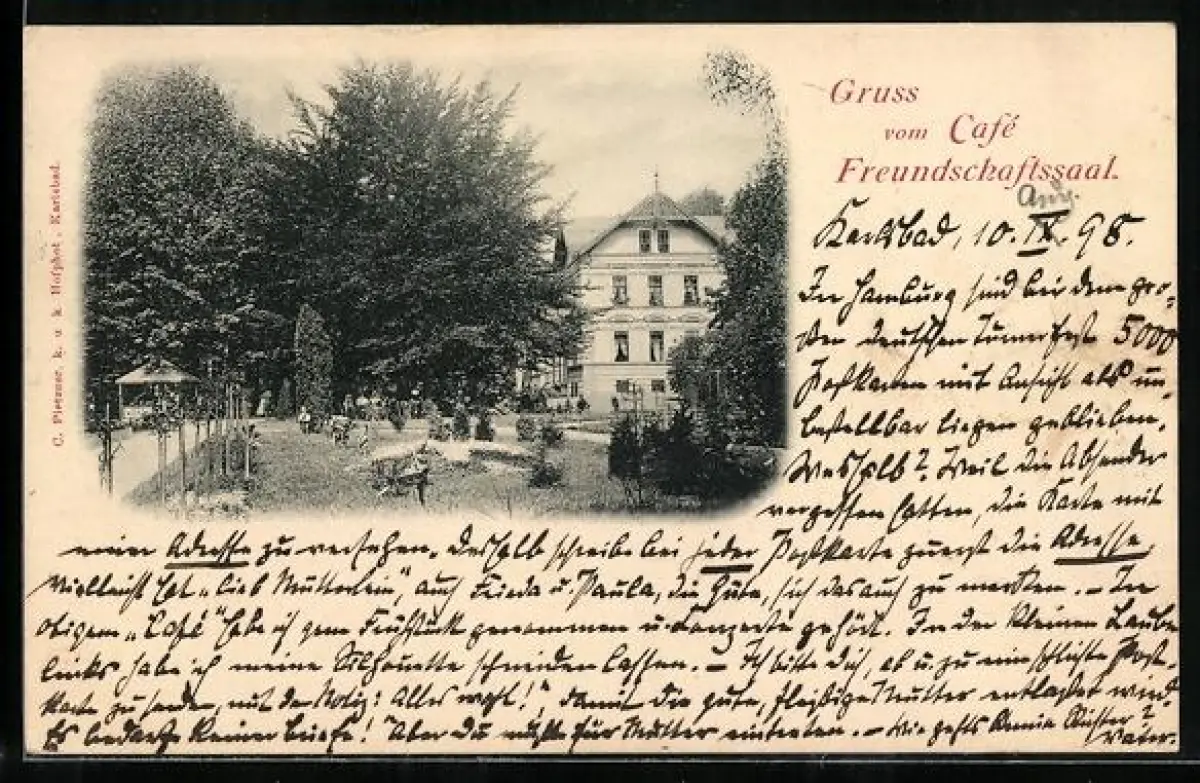 Gruss
vom Café
Freundschaftssaal.
C. Pietzner, k. u. k. Hofphot. Karlsbad.
Aug.
Karlsbad, 10. IX. 98.
In Hamburg sind bei dem gro-
ßen deutschen Turnerfest 5000
Postkarten mit Ansicht als un-
bestellbar liegen geblieben.
Weshalb? Weil die Absender
vergessen hatten, die Karte mit
einer Adresse zu versehen. Deshalb schreibe bei jeder Postkarte zuerst die Adresse.
Vielleicht hat „lieb Mutterlein", auch Frieda u. Paula, die Güte, sich das auch zu merken. – Im
obigem „Café" habe ich gern Frühstück genommen u. Konzerte gehört. In der kleinen Laube
links habe ich meine Silhouette schneiden lassen. – Ich bitte Dich, ab u. zu eine schlichte Post-
karte zu senden, mit der Notiz: Alles wohl!", damit die gute, fleißige Mutter entlastet wird.
Es bedarf keiner Briefe! Aber Du müßtest für Mutter eintreten. – Wie gehts
Vater.